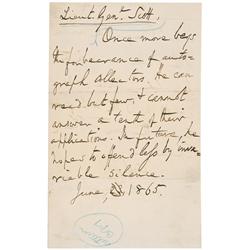 Lieut. Genl. Scott,
Once more begs
the forbearance of auto-
graph collectors. He can
read but few, & cannot
answer a tenth of their
applications. In future, he
hopes to offend less by inva-
riable silence.
June, 1865.